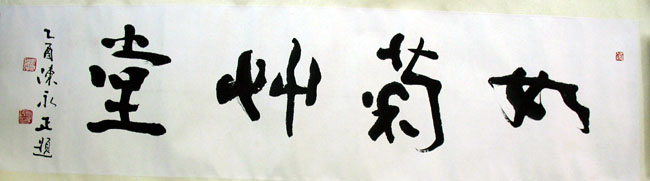 如菊艸堂
乙酉陳永正題